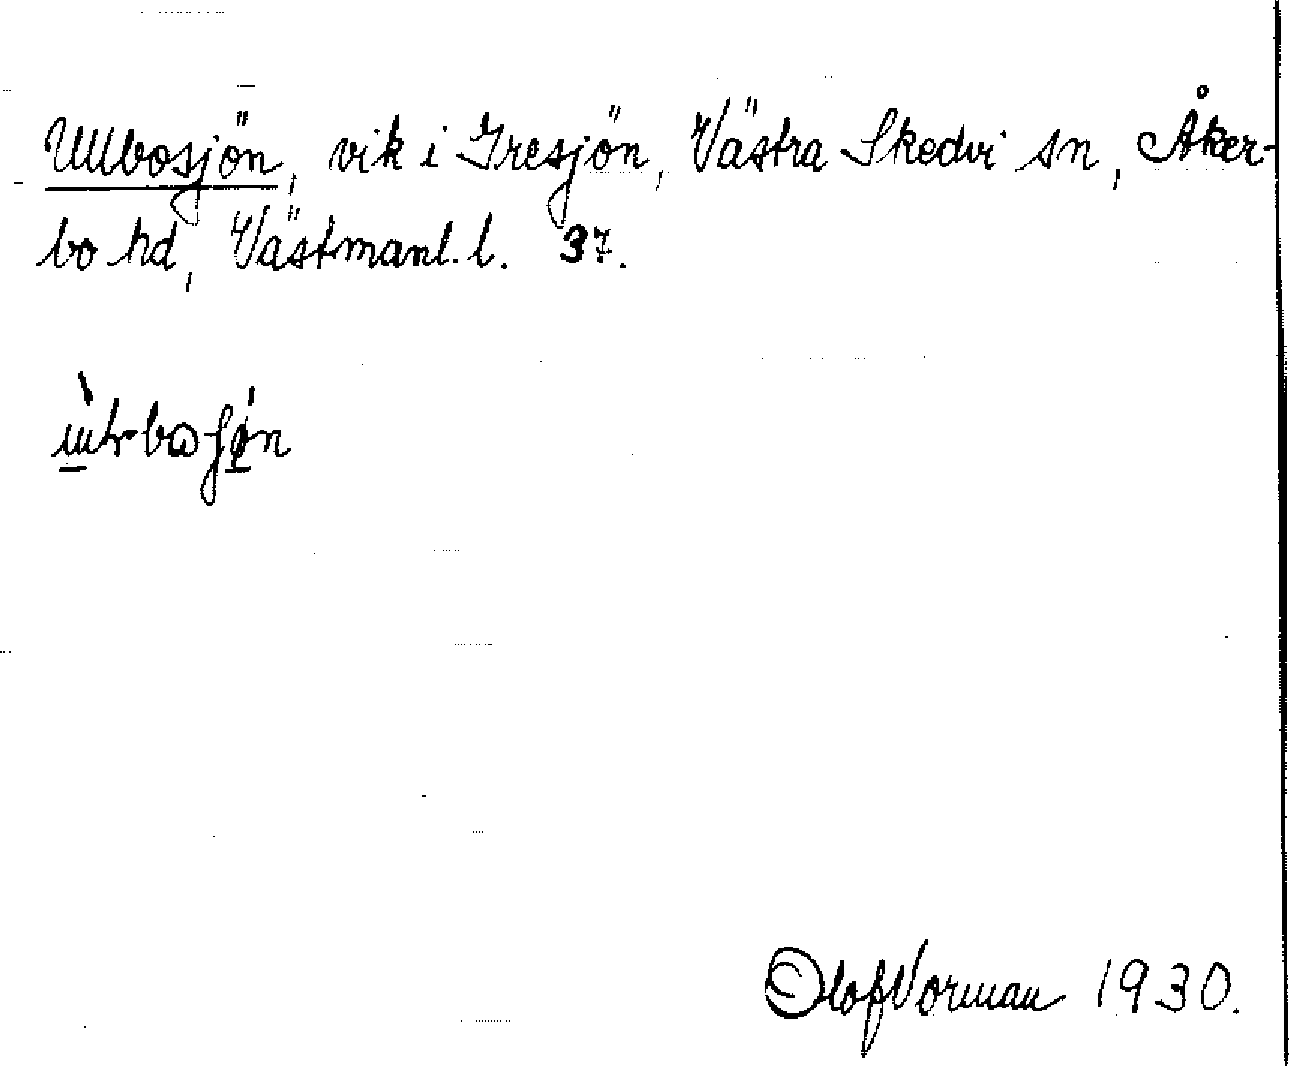 Ullbosjön, vik i Gresjön, Västra Skedvi sn, Åker-
bo hd, Västmanl. l. 37.
Olof Norman 1930.